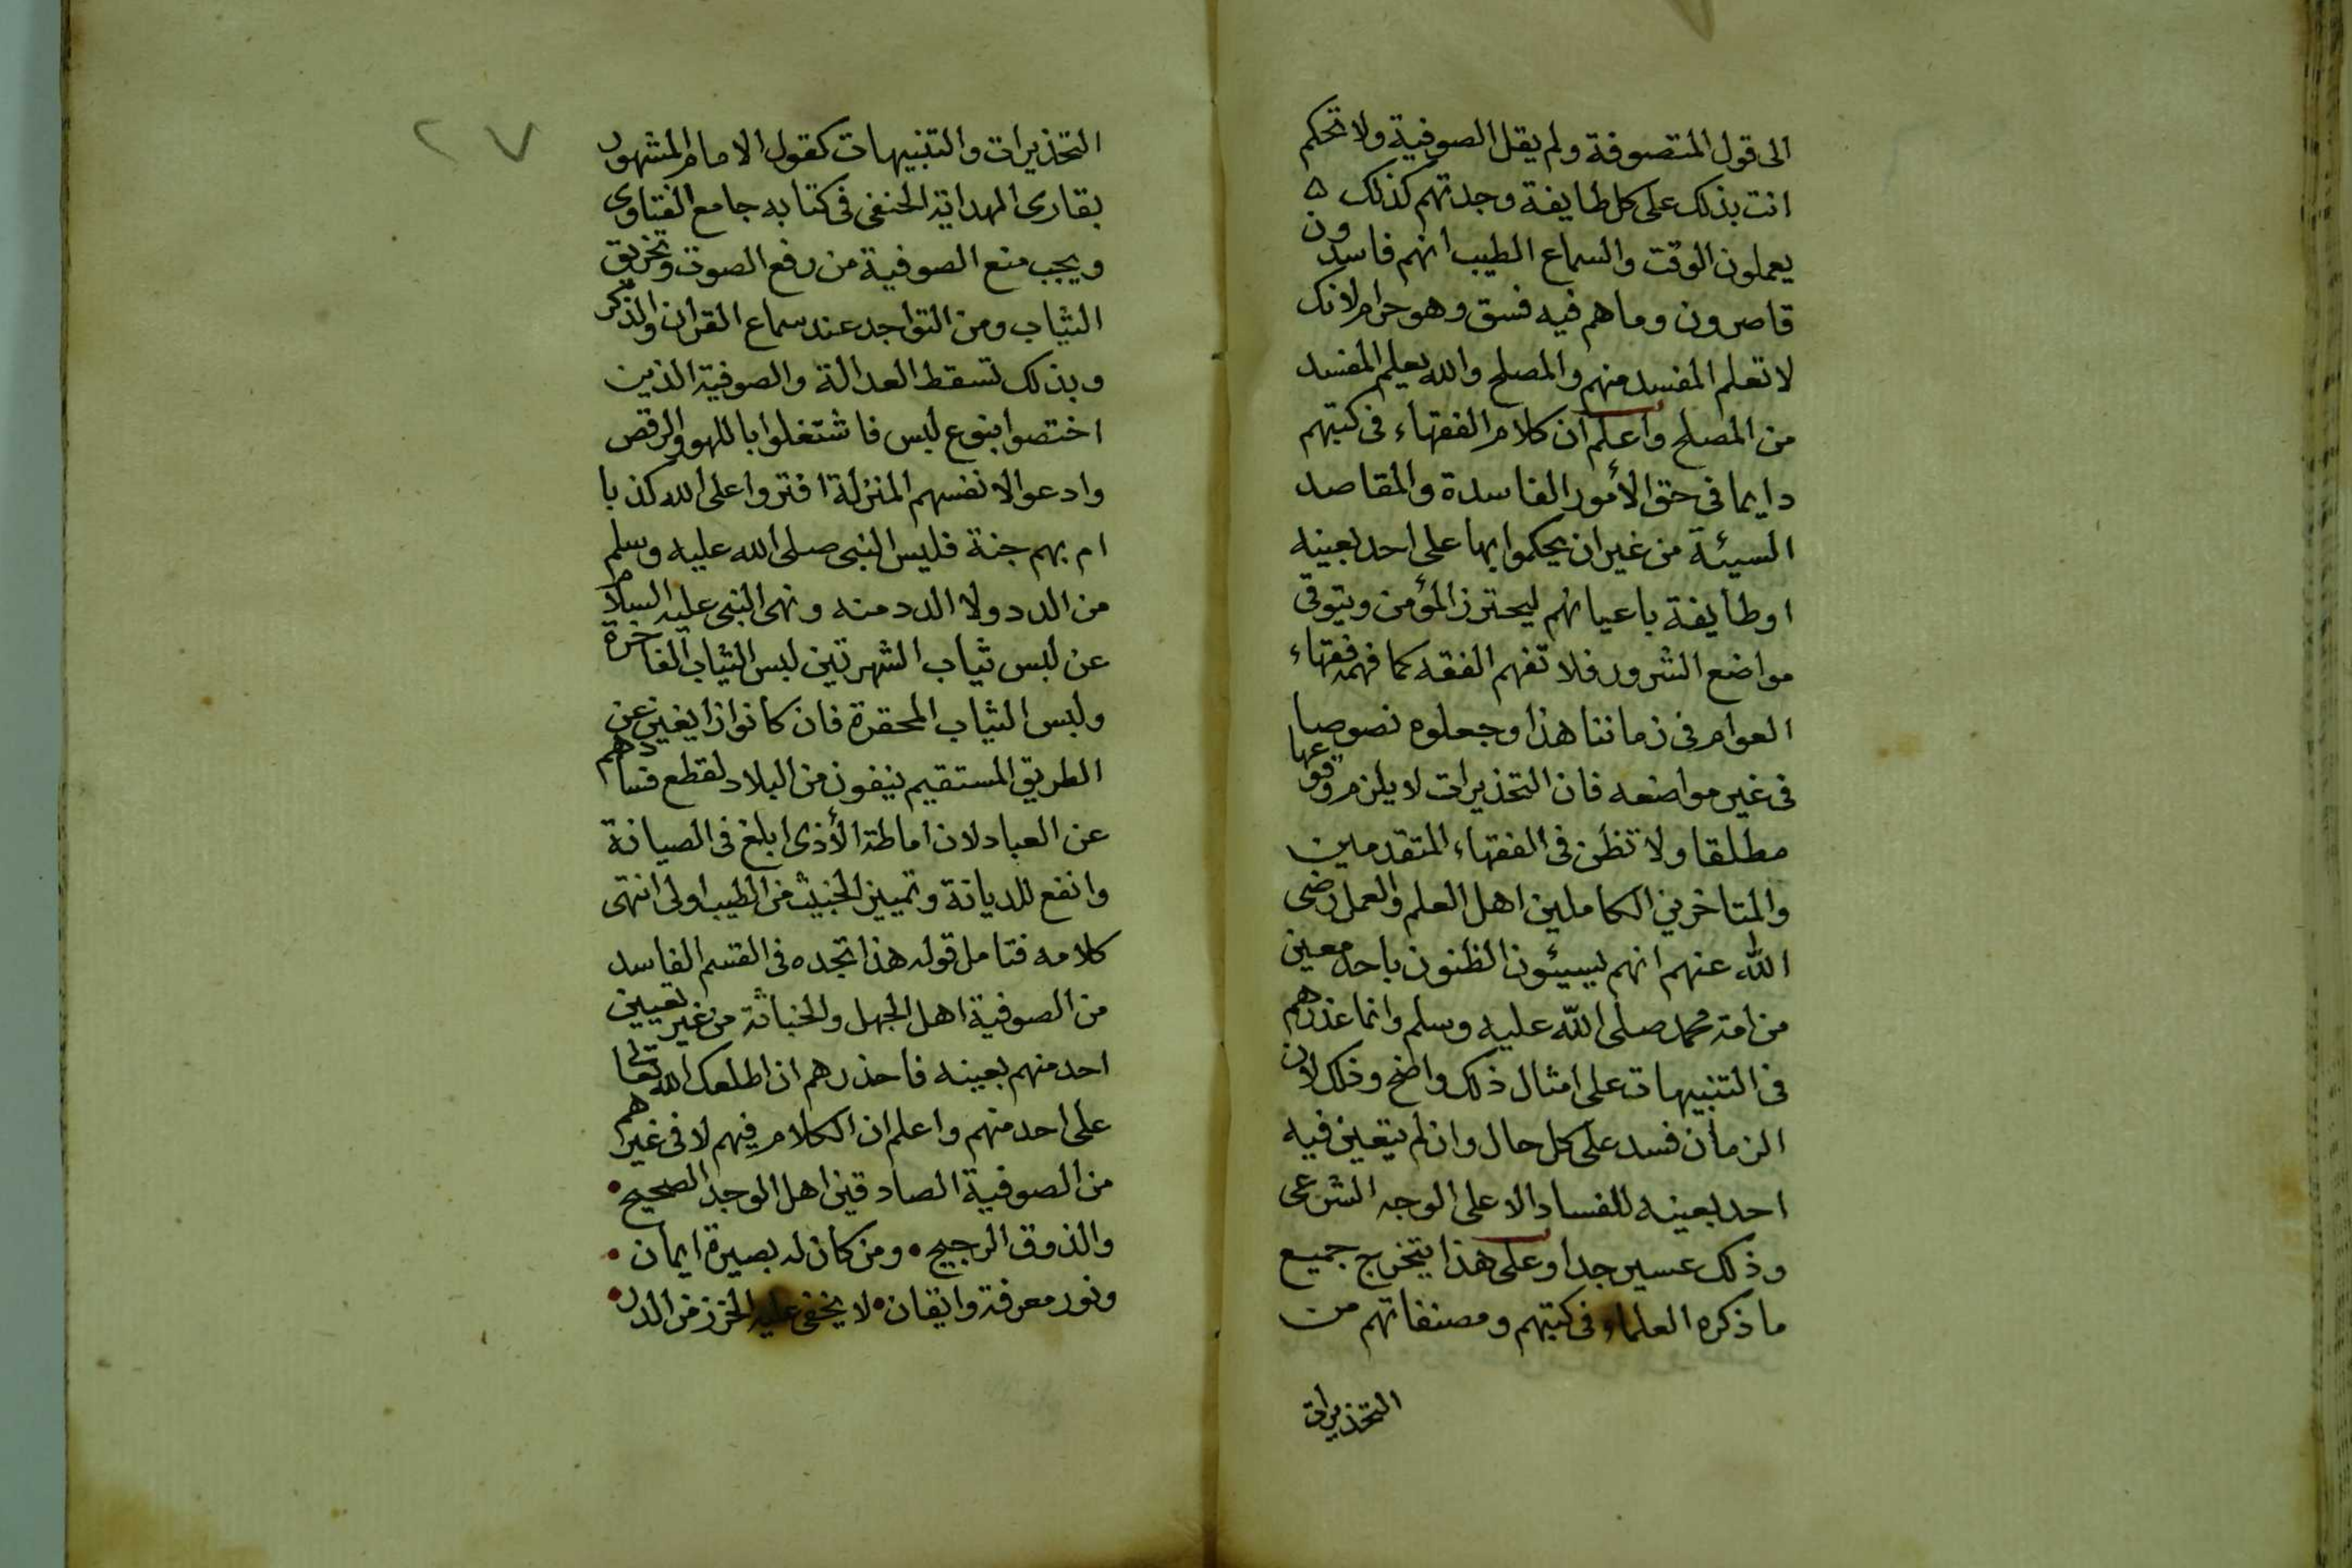 الى قول المتصوفة ولم يقل الصوفية ولا تحكم
انت بذلك على كل طايفة وجدتهم كذلك ه
يعملون الوقت والسماع الطيب انهم فاسدون
قاصرون وما هم فيه فسق وهو حرام لانك
لا تعلم المفسد منهم والمصلح والله يعلم المفسد
من المصلح واعلم ان كلام الفقهاء فى كتبهم
دايما فى حق الأمور الفاسدة والمقاصد
السيئة من غير ان يحكموا بها على احد بعينه
او طايفة باعيانهم ليحترز المؤمن ويتوقى
مواضع الشرور فلا تفهم الفقه كما فهمه فقهاء
العوام فى زماننا هذا وجعلوه نصوصا
فى غير مواضعه فان التحذيرات لا يلزم وقوعها
مطلقا ولا تظن فى الفقهاء المتقدمين
والمتاخرين الكاملين اهل العلم والعمل رضى
الله عنهم انهم يسيئون الظنون باحد معين
من امة محمد صلى الله عليه وسلم وانما عذرهم
فى التنبيهات على امثال ذلك واضح وذلك لان
الزمان فسد على كل حال وان لم يتعين فيه
احد بعينه للفساد الا على الوجه الشرعى
وذلك عسير جدا وعلى هذا يتخرج جميع
ما ذكره العلماء فى كتبهم ومصنفاتهم من
التحذيرات
٢٧
التحذيرات والتنبيهات كقول الامام المشهور
بقارى الهداية الحنفى فى كتابه جامع الفتاوى
ويجب منع الصوفية من رفع الصوت وتخريق
الثياب ومن التواجد عند سماع القران والذكر
وبذلك تسقط العدالة والصوفية الذين
اختصوا بنوع لبس فاشتغلوا باللهو والرقص
وادعوا لانفسهم المنزلة افتروا على الله كذبا
ام بهم جنة فليس النبى صلى الله عليه وسلم
من الدد ولا الدد منه ونهى النبى عليه السلام
عن لبس ثياب الشهرتين لبس الثياب الفاخرة
ولبس الثياب المحقرة فان كانوا زايغين عن
الطريق المستقيم ينفون من البلاد لقطع فسادهم
عن العباد لان اماطة الأذى ابلغ فى الصيانة
وانفع للديانة وتمييز الخبيث من الطيب اولى انتهى
كلامه فتامل قوله هذا تجده فى القسم الفاسد
من الصوفية اهل الجهل والخباثة من غير تعيين
احد منهم بعينه فاحذرهم ان اطلعك الله تعالى
على احد منهم واعلم ان الكلام فيهم لا فى غيرهم
من الصوفية الصادقين اهل الوجد الصحيح •
والذوق الرجيح • ومن كان له بصيرة ايمان •
ونور معرفة وايقان • لا يخفى عليه الخرز من الدر •